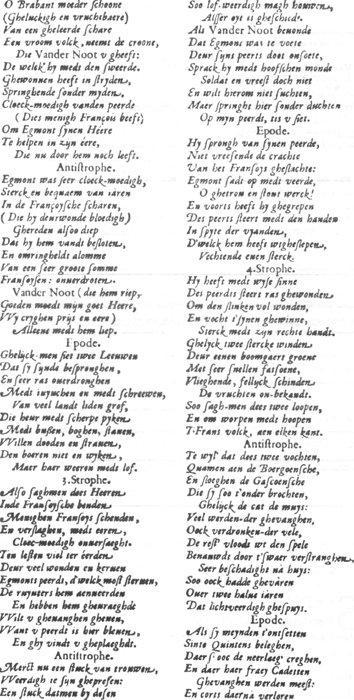 O Brabant moeder schoone
(Gheluckigh en vruchtbaere)
Van een gheleerde schare
Een vroom volck, neemt de croone,
Die Vander Noot v gheeft:
De welck hy meds den sweerde.
Ghewonnen heeft in stryden,
Springhende sonder myden,
Cloeck-moedigh vanden peerde
(Dies menigh François beeft)
Om Egmont synen Heere
Te helpen in zyn eere,
Die nu door hem noch leeft.
Antistrophe.
Egmont was seer cloeck-moedigh,
Sterck en bequaem van iaren
In de Françoysche scharen,
(Die hy deurwonde bloedigh)
Ghereden alsoo diep
Dat hy hem vandt besloten,
En omringheldt alomme
Van een seer groote somme
Fransoysen: onuerdroten.
Vander Noot (die hem riep,
Goeden moedt myn goet Heere,
Wy cryghen prys en eere)
Alleene medt hem liep.
Epode.
Ghelyck men siet twee Leeuwen
Dat sy synde bespronghen,
En seer ras ouerdronghen
Medts iuyschen en medts schreewen,
Van veel landt liden grof,
Die heur medt scherpe pyken
Medts bussen, boghen, stauen,
Willen dooden en strauen,
Den boeren niet en wyken,
Maer haer weeren medt lof.
3.Strophe.
Also saghmen dees Heeren
Inde Fransoysche benden
Menighen Fransoys schenden,
En verslaghen, medt teren,
Cloeck-moedigh onuersaeght.
Ten lesten viel ter eerden
Deur veel wonden en keruen
Egmonts peerdt, d'welck most steruen,
De ruyters hem aenueerden
En hebben hem gheuraeghdt
Wilt v ghenanghen gheuen,
Want v peerdt is hier bleuen,
En ghy vindt v gheplaeghdt.
Antistrophe.
Merct nu een stuck van trouwen,
Weerdigh te syn ghepresen:
Een stuck datmen by desen
Soo lof-weerdigh magh houwen,
Alsser oyt is gheschiedt.
Als Vander Noot beuondt
Dat Egmont was te voete
Deur syns peerts doot onsoete,
Sprack hy medt hoofschen monde
Soldat en vreest doch niet
En wilt hierom niet suchten,
Maer springht hier sonder duchten
Op myn peerdt, tis v siet.
Epode.
Hy sprongh van synen peerde,
Niet vreesende de crachte
Van het Fransoys gheslachte:
Egmont sadt op medt weerde,
O ghetrou en stout werck!
En voorts heeft hy ghegrepen
Des peerts steert medt den handen
In spyte der vyanden,
D'welck hem heeft wtgheslepen,
Vechtende euen sterck.
4.Strophe.
Hy heeft medts wyse sinne
Des peerdts steert ras ghewonden
Om den slincken vol wonden,
En vocht t'synen ghewinne,
Sterck medt zyn rechte handt.
Ghelyck twee stercke winden
Deur eenen boomgaert groene
Met seer snellen fatsoene,
Vlieghende, fellyck schinden
De vruchten on-bekandt.
Soo sagh-men dees twee loopen,
En om worpen medt hoopen
T-Frans volck, aen elken kant.
Antistrophe.
Te wyl dat dees twee vochten,
Quamen aen de Boergoensche,
En sloeghen de Gascoensche
Die sy soo t'onder brochten,
Ghelyck de cat de muys:
Veel werden-der ghevanghen,
Oock verdronken-der vele,
De rest vloodt wt den spele
Benauwdt door t'swaer verstranghen,
Seer beschadight na huys:
Soo oock hadde ghevaren
Ouer twee halue iaren
Dat lichtveerdigh ghespuys.
Epode.
Als sy meynden t'ontsetten
Sinte Quintens beleghen,
Daers' ooc de neerlaeg' creghen,
En daer haer fraey Cadetten
Ghevanghen werden meest:
En corts daerna verloren